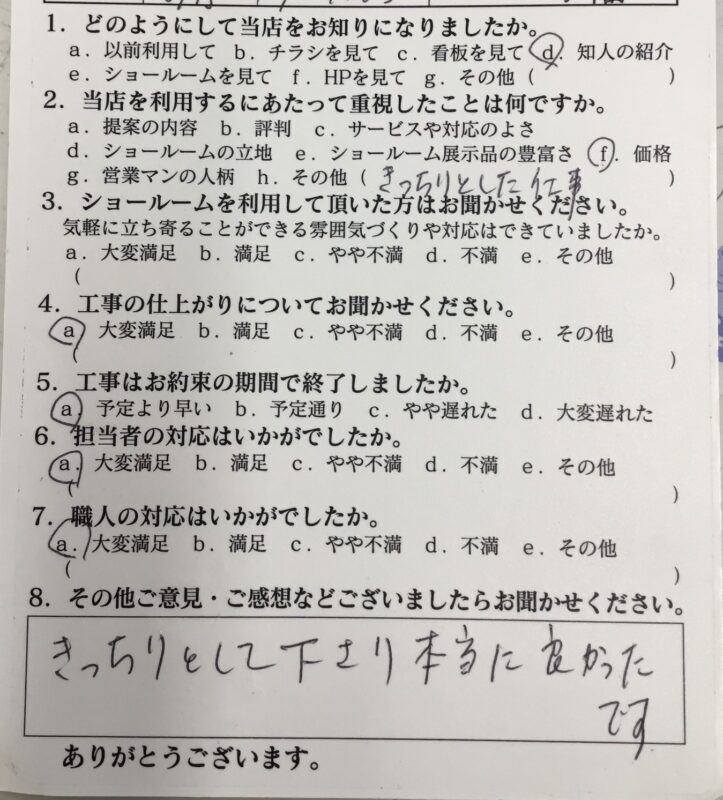 1．どのようにして当店をお知りになりましたか。
a．以前利用して b．チラシを見て c．看板を見て d．知人の紹介
e．ショールームを見て f．HPを見て g．その他（ ）
2．当店を利用するにあたって重視したことは何ですか。
a．提案の内容 b．評判 c．サービスや対応のよさ
d．ショールームの立地 e．ショールーム展示品の豊富さ f．価格
g．営業マンの人柄 h．その他（ きっちりとした仕事 ）
3．ショールームを利用して頂いた方はお聞かせください。
気軽に立ち寄ることができる雰囲気づくりや対応はできていましたか。
a．大変満足 b．満足 c．やや不満 d．不満 e．その他
（ ）
4．工事の仕上がりについてお聞かせください。
a 大変満足 b．満足 c．やや不満 d．不満 e．その他
（ ）
5．工事はお約束の期間で終了しましたか。
a 予定より早い b．予定通り c．やや遅れた d．大変遅れた
6．担当者の対応はいかがでしたか。
a．大変満足 b．満足 c．やや不満 d．不満 e．その他
（ ）
7．職人の対応はいかがでしたか。
a．大変満足 b．満足 c．やや不満 d．不満 e．その他
（ ）
8．その他ご意見・ご感想などございましたらお聞かせください。
きっちりとして下さり本当に良かった
です
ありがとうございます。